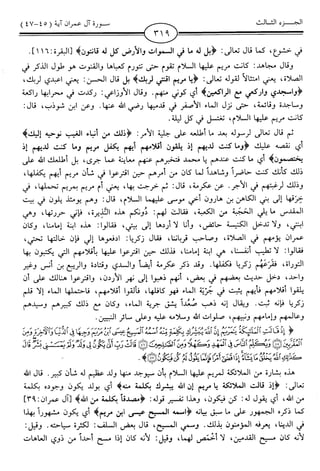 الجزء الثالث
٣١٩
سورة آل عمران آية (٤٥-٤٧)
في خشوع، كما قال تعالى: ﴿بل له ما في السموات والأرض كل له قانتون﴾ [البقرة: ١١٦].
وقال مجاهد: كانت مريم عليها السلام تقوم حتى تتورم كعباها والقنوت هو طول الركود في
الصلاة، يعني امتثالاً لقوله تعالى: ﴿يا مريم اقنتي لربك﴾ بل قال الحسن: يعني اعبدي لربك،
﴿واسجدي واركعي مع الراكعين﴾ أي كوني منهم. وقال الأوزاعي: ركدت في محرابها راكعة
وساجدة وقائمة، حتى نزل الماء الأصفر في قدميها رضي الله عنها. وعن ابن شوذب، قال:
كانت مريم عليها السلام، تغتسل في كل ليلة.
ثم قال تعالى لرسوله بعد ما أطلعه على جلية الأمر: ﴿ذلك من أنباء الغيب نوحيه إليك﴾
أي نقصه عليك ﴿وما كنت لديهم إذ يلقون أقلامهم أيهم يكفل مريم وما كنت لديهم إذ
يختصمون﴾ أي ما كنت عندهم يا محمد فتخبرهم عنهم معاينة عما جرى، بل أطلعك الله على
ذلك كأنك كنت حاضراً وشاهداً لما كان من أمرهم حين اقترعوا في شأن مريم أيهم يكفلها،
وذلك لرغبتهم في الأجر. عن عكرمة، قال: ثم خرجت بها، يعني أم مريم بمريم تحملها، في
خرقها إلى بني الكاهن بن هارون أخي موسى عليهما السلام، قال: وهم يومئذ يلون في بيت
المقدس ما يلي الحَجَبة من الكعبة، فقالت لهم: دونكم هذه النَّذِيرة، فإني حررتها، وهي
ابنتي، ولا تدخل الكنيسة حائض، وأنا لا أردها إلى بيتي، فقالوا: هذه ابنة إمامنا، وكان
عمران يؤمهم في الصلاة، وصاحب قرباننا، فقال زكريا: ادفعوها إلي فإن خالتها تحتي،
فقالوا: لا تطيب أنفسنا، هي ابنة إمامنا، فذلك حين اقترعوا عليها بأقلامهم التي يكتبون بها
التوراة، فَقَرَعَهُم زكريا فكفلها. وقد ذكر عكرمة أيضاً والسدي وقتادة والربيع بن أنس وغير
واحد، دخل حديث بعضهم في بعض، أنهم ذهبوا إلى نهر الأردن، واقترعوا هنالك على أن
يلقوا أقلامهم فأيهم يثبت في جَرْيَة الماء فهو كافلها، فألقوا أقلامهم، فاحتملها الماء إلا قلم
زكريا فإنه ثبت. ويقال إنه ذهب صُعُداً يشق جرية الماء، وكان مع ذلك كبيرهم وسيدهم
وعالمهم وإمامهم ونبيهم، صلوات الله وسلامه عليه وعلى سائر النبيين.
هذه بشارة من الملائكة لمريم عليها السلام بأن سيوجد منها ولد عظيم له شأن كبير. قال الله
تعالى: ﴿إذ قالت الملائكة يا مريم إن الله يبشرك بكلمة منه﴾ أي بولد يكون وجوده بكلمة
من الله، أي يقول له: كن فيكون، وهذا تفسير قوله: ﴿مصدقاً بكلمة من الله﴾ [آل عمران: ٣٩]
كما ذكره الجمهور على ما سبق بيانه ﴿اسمه المسيح عيسى ابن مريم﴾ أي يكون مشهوراً بهذا
في الدنيا، يعرفه المؤمنون بذلك. وسمي المسيح، قال بعض السلف: لكثرة سياحته. وقيل:
لأنه كان مسيح القدمين، لا أخمص لهما، وقيل: لأنه كان إذا مسح أحداً من ذوي العاهات